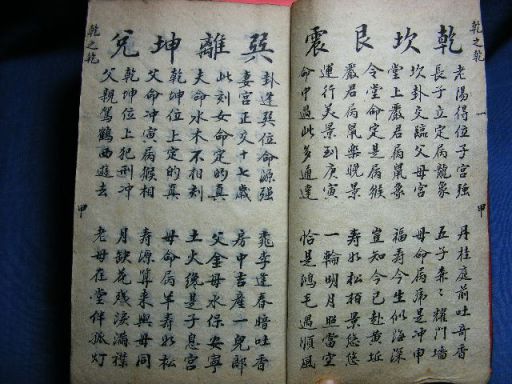 乾之乾
一
甲
乾坎艮震
老陽得位子宮強 丹桂庭前吐奇香
長子立定病龍象 五子森森耀門墻
坎卦爻臨父母宮 母命病馬是冲申
堂上嚴君病鼠象 福壽今生似海深
令堂命定是病猴 豈知今已赴黃坵
嚴君病鼠樂晚景 壽如松柏景悠悠
運行美景到庚寅 一輪明月照當空
命中過此多通達 恰是鴻毛遇順風
巽離坤兌
卦逢巽位命源強 李逢春暗吐香
妻宮正交十七歲 房中吉慶一兒郎
此刻女命定的真 父金母水保安寧
夫命水木不相刻 土火後是子息宮
乾坤位上定的真 母命病羊壽如松
父命冲寅病猴相 壽源算來與母同
乾坤位上犯刑冲 月缺花殘淚滿襟
父親駕鶴西遊去 老母在堂伴孤灯
乾之乾
甲